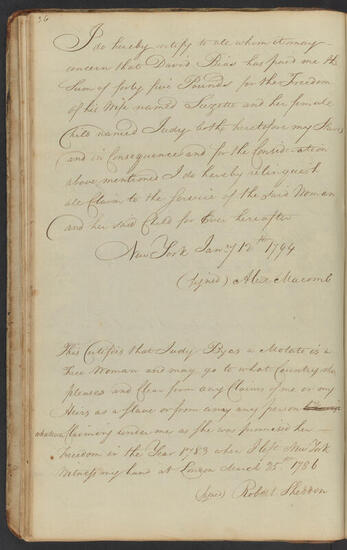 36
I do hereby certify to all whom it may
concern that David Bias has paid me the
Sum of forty five Pounds for the Freedom
of his Wife named Suzette and her female
Child named Judy both heretofore my Slaves
and in Consequence and for the Consideration
above mentioned I do hereby relinquish
all Claim to the Service of the said Woman
and her said Child for Ever hereafter
New York Jany 12th 1794
(signed) Alex Macomb
This Certifies that Judy Byas a Molato is a
Free Woman and may go to what Country she
pleases and Clear from any Claims of me or my
Heirs as a slave or from any any person
whatever Claiming under me as she was promised her
Freedom in the Year 1783 when I left New York
Witness my hand at London March 25th 1786
(signed) Robert Sheddon